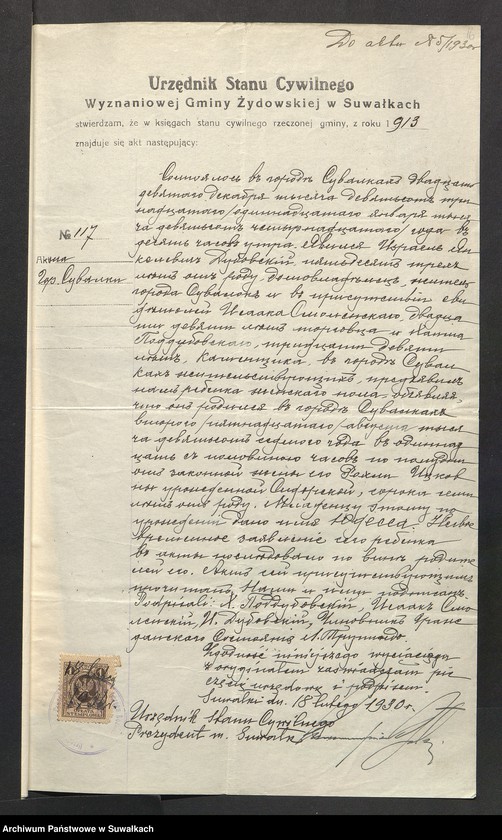 Do aktu № 5/1930r
Urzędnik Stanu Cywilnego
Wyznaniowej Gminy Żydowskiej w Suwałkach
stwierdzam, że w księgach stanu cywilnego rzeczonej gminy, z roku 1913
znajduje się akt następujący:
№ 117
гор. Сувалки
Состоялось въ городѣ Сувалкахъ двадцать
девятого декабря тысяча девятьсотъ три
надцатаго /одиннадцатаго января тыся
ча девятьсотъ четырнадцатаго/ года въ
девять часовъ утра. Явился Израель Ян
келевичъ Дубовскій, пятидесяти трехъ
лѣтъ отъ роду, домовладѣлецъ, житель
города Сувалокъ и въ присутствіи сви
дѣтелей Исаака Смоленскаго, двадца
ти девяти лѣтъ торговца и
Поддубовскаго, тридцати девяти
лѣтъ, каменщика, въ городѣ Сувал
кахъ жительствующихъ, предъявилъ
намъ ребенка женского пола, объявляя
что онъ родился въ городѣ Сувалкахъ
второго /пятнадцатаго/ августа тыся
ча девятьсотъ седьмого года въ одиннад
цать съ половиною часовъ по полудни
отъ законной жены его Рохли Ицков
ны урожденной Сидерской, сорока семи
лѣтъ отъ роду. Младенцу этому по
рожденіи дано имя Юдеса. Несво
временное заявленіе сего ребенка
въ акты послѣдовало по винѣ родите
лей его. Актъ сей присутствующимъ
прочитанъ, Нами и ими подписанъ.
Подписали: Х. Поддубовскій, Исаакъ Смо
ленскій, И. Дубовскій, Чиновникъ Граж
данскаго Состоянія
Zgodność niniejszego wyciągu
z oryginałem zaświadczam pie
częcią urzędową i podpisem.
Suwałki dn. 18 lutego 1930 r.
Urzędnik Stanu Cywilnego
Prezydent m. Suwałk
Archiwum Państwowe w Suwałkach